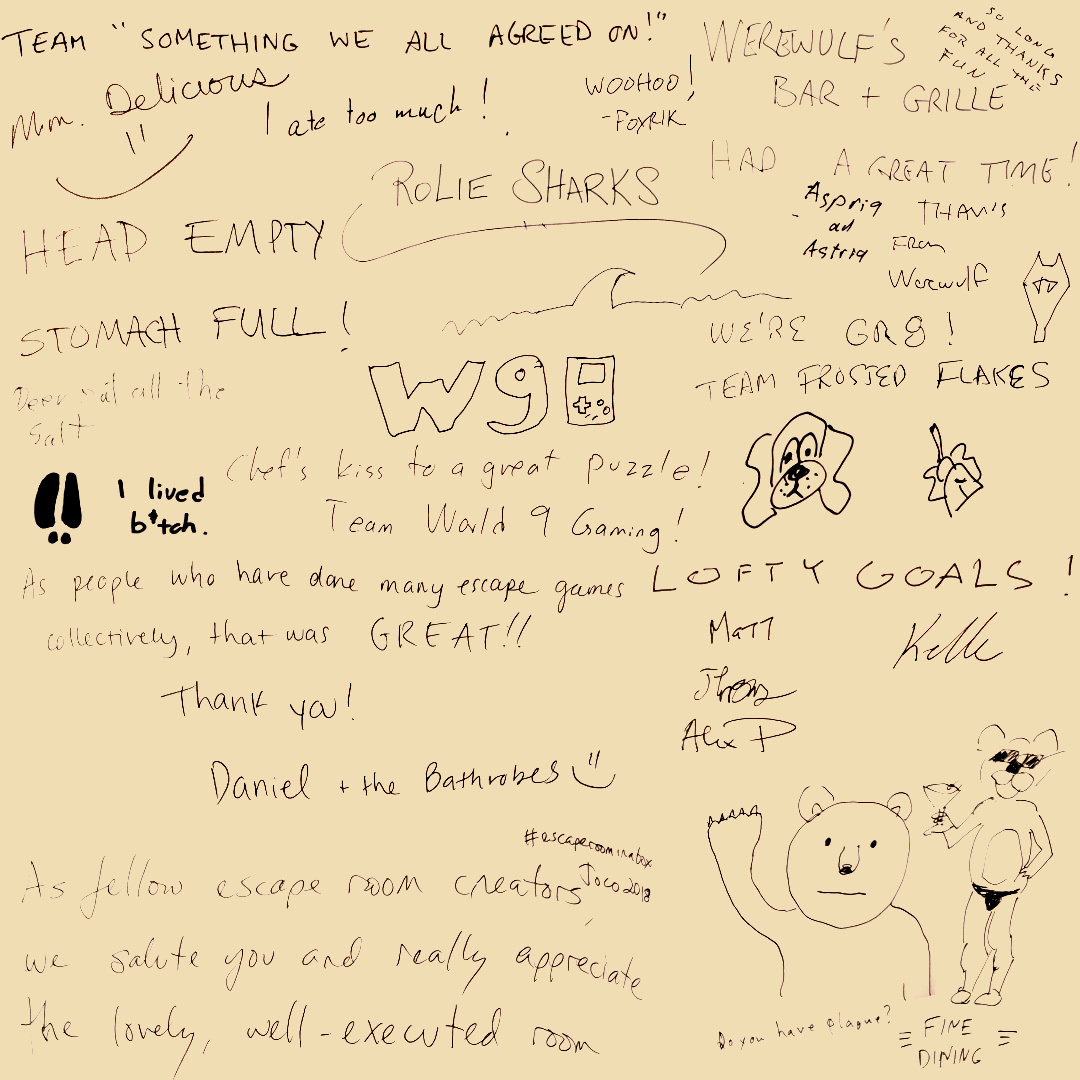 TEAM "SOMETHING WE ALL AGREED ON!"
Mm. Delicious
I ate too much!
WOOHOO!
-FOXRIK
WEREWULF'S
BAR + GRILLE
SO LONG
AND THANKS
FOR ALL THE
FUN
HAD A GREAT TIME!
ROLIE SHARKS
Aspria
ad
Astria
THANKS
FROM
Werewulf
HEAD EMPTY
STOMACH FULL!
WE'RE GR8!
TEAM FROSTED FLAKES
all the
salt
W9
Chef's kiss to a great puzzle!
Team World 9 Gaming!
I lived
b*tch.
As people who have done many escape games
collectively, that was GREAT!!
Thank you!
Daniel + the Bathrobes
LOFTY GOALS!
Matt
Alex P
#escaperoominabox
JoCo2018
As fellow escape room creators
we salute you and really appreciate
the lovely, well-executed room
Do you have plague?
FINE
DINING